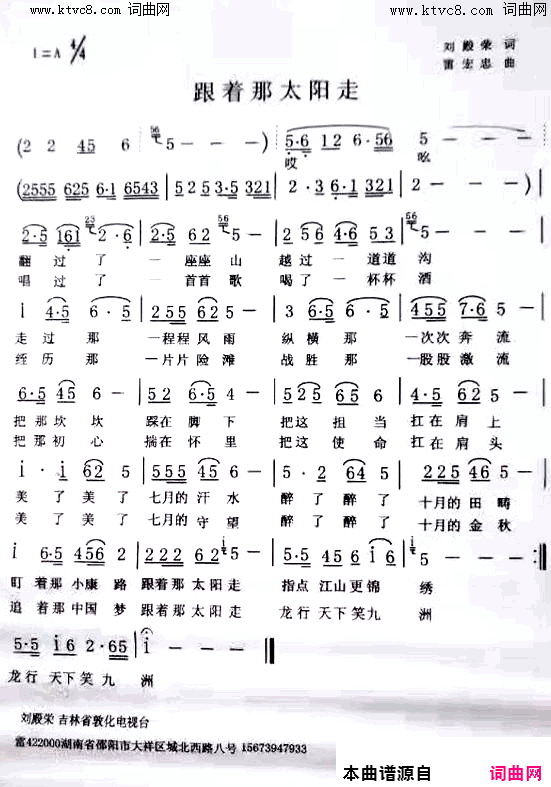 www.ktvc8.com 词曲网 www.ktvc8.com 词曲网
1=A 4/4
刘殿荣 词
雷宏忠 曲
跟着那太阳走
(2 2 45 6 56 5 - - -) 5·6 12 6·56 5 - - -
哎 吆
(2555 625 6·1 6543 | 5252 3·5 321 | 2·3 6·1 5·5 321 | 2 - - -)
2·5 161 23 2·6 | 2·5 5 56 2·5 5 | 2 56 4·6 2 6 53 | 5 - - -
翻过了 一座座山 越过一道道沟
唱过了 一首首歌 喝了一杯杯酒
i 4·5 6· 5 | 255 5 62 5 | 3 6·5 6· 2 | 455 7·6 5
走过那 一程程风雨 纵横那 一次次奔流
经历那 一片片险滩 战胜那 一股股激流
6·5 45 6 - | 2·5 6 5 4 - | 4·5 24 6 - | 4·5 62 5 -
把那坎坎 踩在脚下 把这担当 扛在肩上
把那初心 揣在怀里 把这使命 扛在肩头
i · i 62 5 | 555 45 6 - | 5· 2 64 5 | 225 46 5 -
美了美了 七月的汗水 醉了醉了 十月的田畴
美了美了 七月的守望 醉了醉了 十月的金秋
i 6·5 456 2 | 222 2 62 i 5 | 5·5 2 45 6 i 6 | 5 - - - :||
盯着那小康路 跟着那太阳走 指点江山更锦 绣
追着那中国梦 跟着那太阳走 龙行天下笑九 洲
5·5 i6 2·65 | i - - - ||
龙行天下笑九 洲
刘殿荣 吉林省敦化电视台
雷422000湖南省邵阳市大祥区城北西路八号 15673947933
本曲谱源自 词曲网
www.ktvc8.com